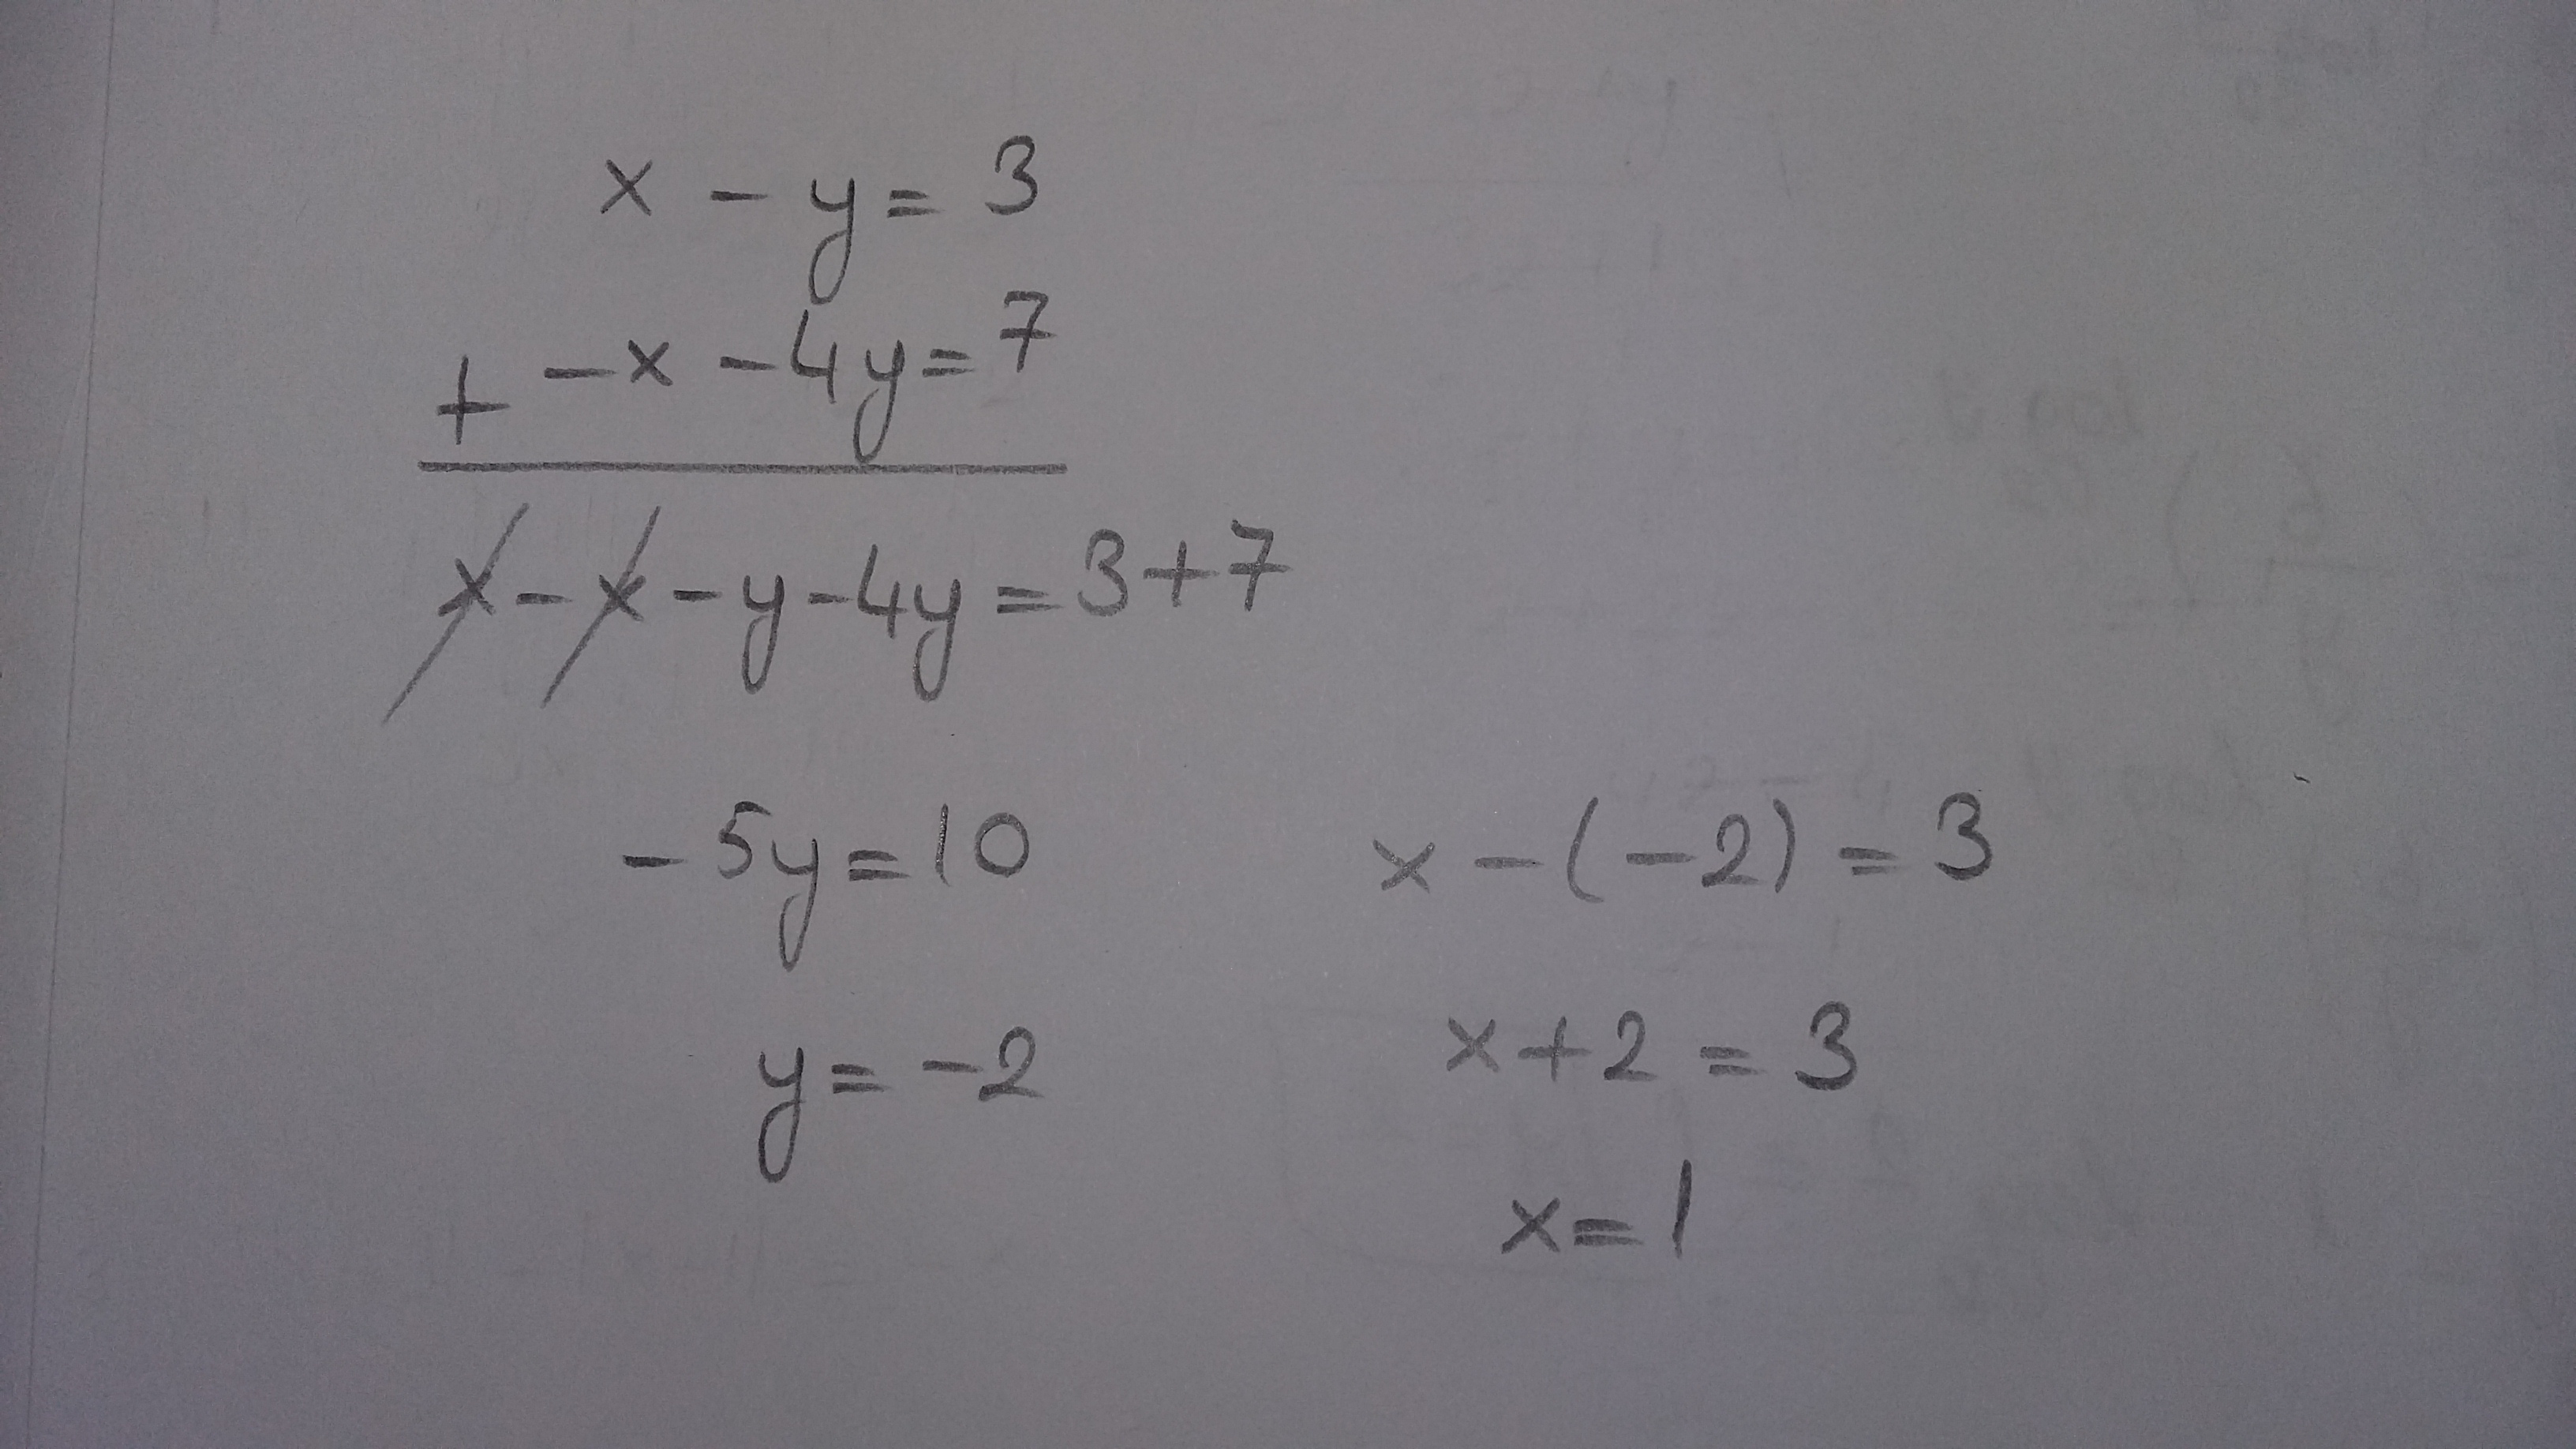 x - y = 3
+ -x - 4y = 7
x - x - y - 4y = 3 + 7
-5y = 10
y = -2
x - (-2) = 3
x + 2 = 3
x = 1